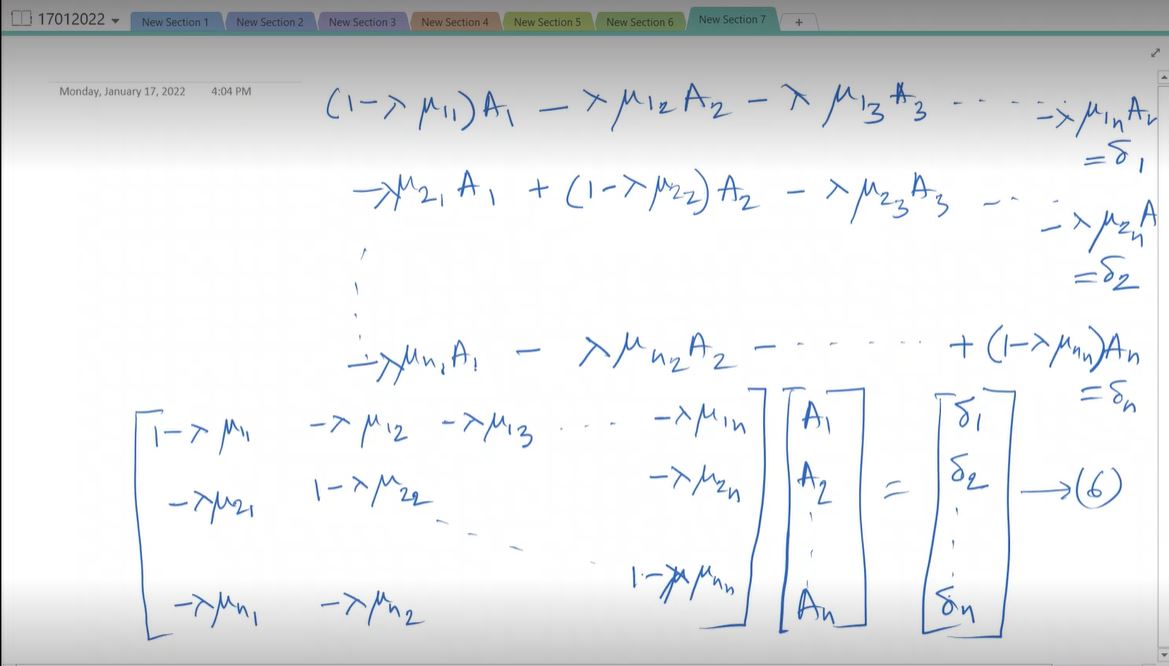 17012022 New Section 1 New Section 2 New Section 3 New Section 4 New Section 5 New Section 6 New Section 7 +
Monday, January 17, 2022 4:04 PM
(1-λμ₁₁)A₁ - λμ₁₂A₂ - λμ₁₃A₃ ---- -λμ₁ₙAₙ
=δ₁
-λμ₂₁A₁ + (1-λμ₂₂)A₂ - λμ₂₃A₃ ---- -λμ₂ₙA
=δ₂
-λμₙ₁A₁ - λμₙ₂A₂ - ...... + (1-λμₙₙ)Aₙ
=δₙ
[1-λμ₁₁ -λμ₁₂ -λμ₁₃ .... -λμ₁ₙ] [A₁] [δ₁]
-λμ₂₁ 1-λμ₂₂ -λμ₂ₙ A₂ = δ₂ →(6)
1-λμₙₙ
-λμₙ₁ -λμₙ₂ Aₙ δₙ